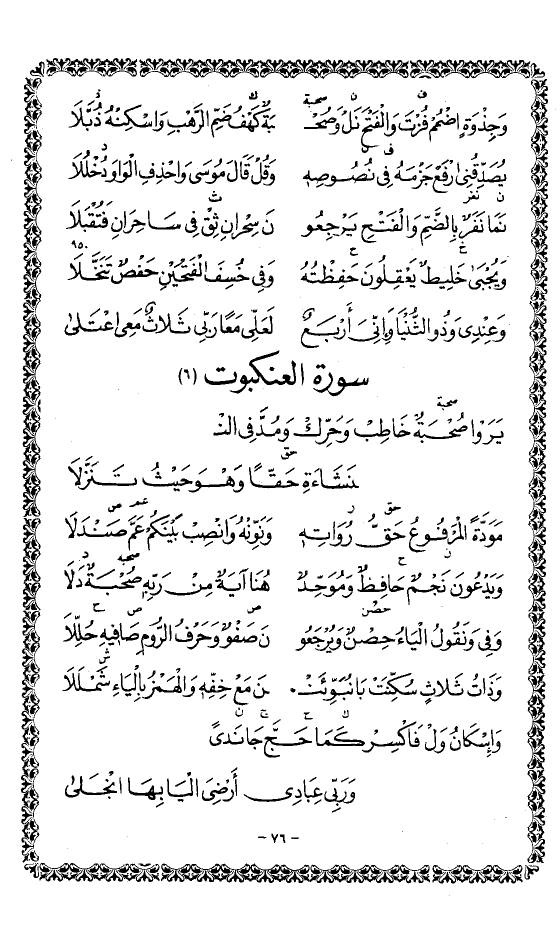 وَجِذْوَةٍ اضْمُمْ فُزْتَ وَالْفَتْحَ نَلْ وَصُحْـ ـبَةٌ كَهْفُ ضَمِّ الرَّهْبِ وَاسْكِنْهُ ذُبَّلَا
يُصَدِّقُنِي ارْفَعْ جَزْمَهُ فِي نُصُوصِهِ وَقُلْ قَالَ مُوسَى وَاحْذِفِ الْوَاوَ دُخْلُلَا
نَمَا نَفَرٌ بِالضَّمِّ وَالْفَتْحِ يَرْجِعُو نَ سِحْرَانِ ثِقْ فِي سَاحِرَانِ فَتُقْبَلَا
٩٥٠
وَيُجْبَى خَلِيطٌ يَعْقِلُونَ حَفِظْتُهُ وَفِي خُسِفَ الْفَتْحَيْنِ حَفْصٌ تَنَخَّلَا
وَعِنْدِي وَذُو الثُّنْيَا وَإِنِّي أَرْبَعٌ لَعَلِّي مَعًا رَبِّي ثَلَاثٌ مَعِي اعْتَلَى
سورة العنكبوت (٦)
يَرَوْا صُحْبَةٌ خَاطِبْ وَحَرِّكْ وَمُدَّ فِي النْـ
ـنَشَاءَةِ حَقًّا وَهْوَ حَيْثُ تَنَزَّلَا
مَوَدَّةً الْمَرْفُوعُ حَقُّ رُوَاتِهِ وَنَوِّنْهُ وَانْصِبْ بَيْنَكُمْ عَمَّ صَنْدَلَا
وَيَدْعُونَ نَجْمٌ حَافِظٌ وَمُوَحِّدٌ هُنَا آيَةٌ مِنْ رَبِّهِ صُحْبَةٌ دَلَا
وَفِي وَنَقُولُ الْيَاءُ حِصْنٌ وَيُرْجَعُو نَ صَفْوٌ وَحَرْفُ الرُّومِ صَافِيهِ حُلِّلَا
وَذَاتُ ثَلَاثٍ سُكِّنَتْ بَا نُبَوِّئَنْـ ـنَ مَعْ خِفِّهِ وَالْهَمْزُ بِالْيَاءِ شَمْلَلَا
وَإِسْكَانُ وَلْ فَاكْسِرْ كَمَا حَجَّ جَا نَدًى
وَرَبِّي عِبَادِي أَرْضِيَ الْيَا بِهَا انْجَلَى
- ٧٦ -